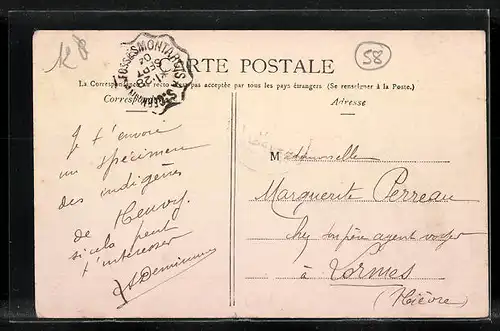 58
CARTE POSTALE
La Correspondance au recto n'est pas acceptée par tous les pays étrangers (Se renseigner à la Poste.)
Correspondance
Adresse
Je t'envoie
un spécimen
des indigènes
de
si cela peut
t'intéresser
Mademoiselle
Marguerite Perreau
chez son père agent voyer
à Lormes
(Nièvre)